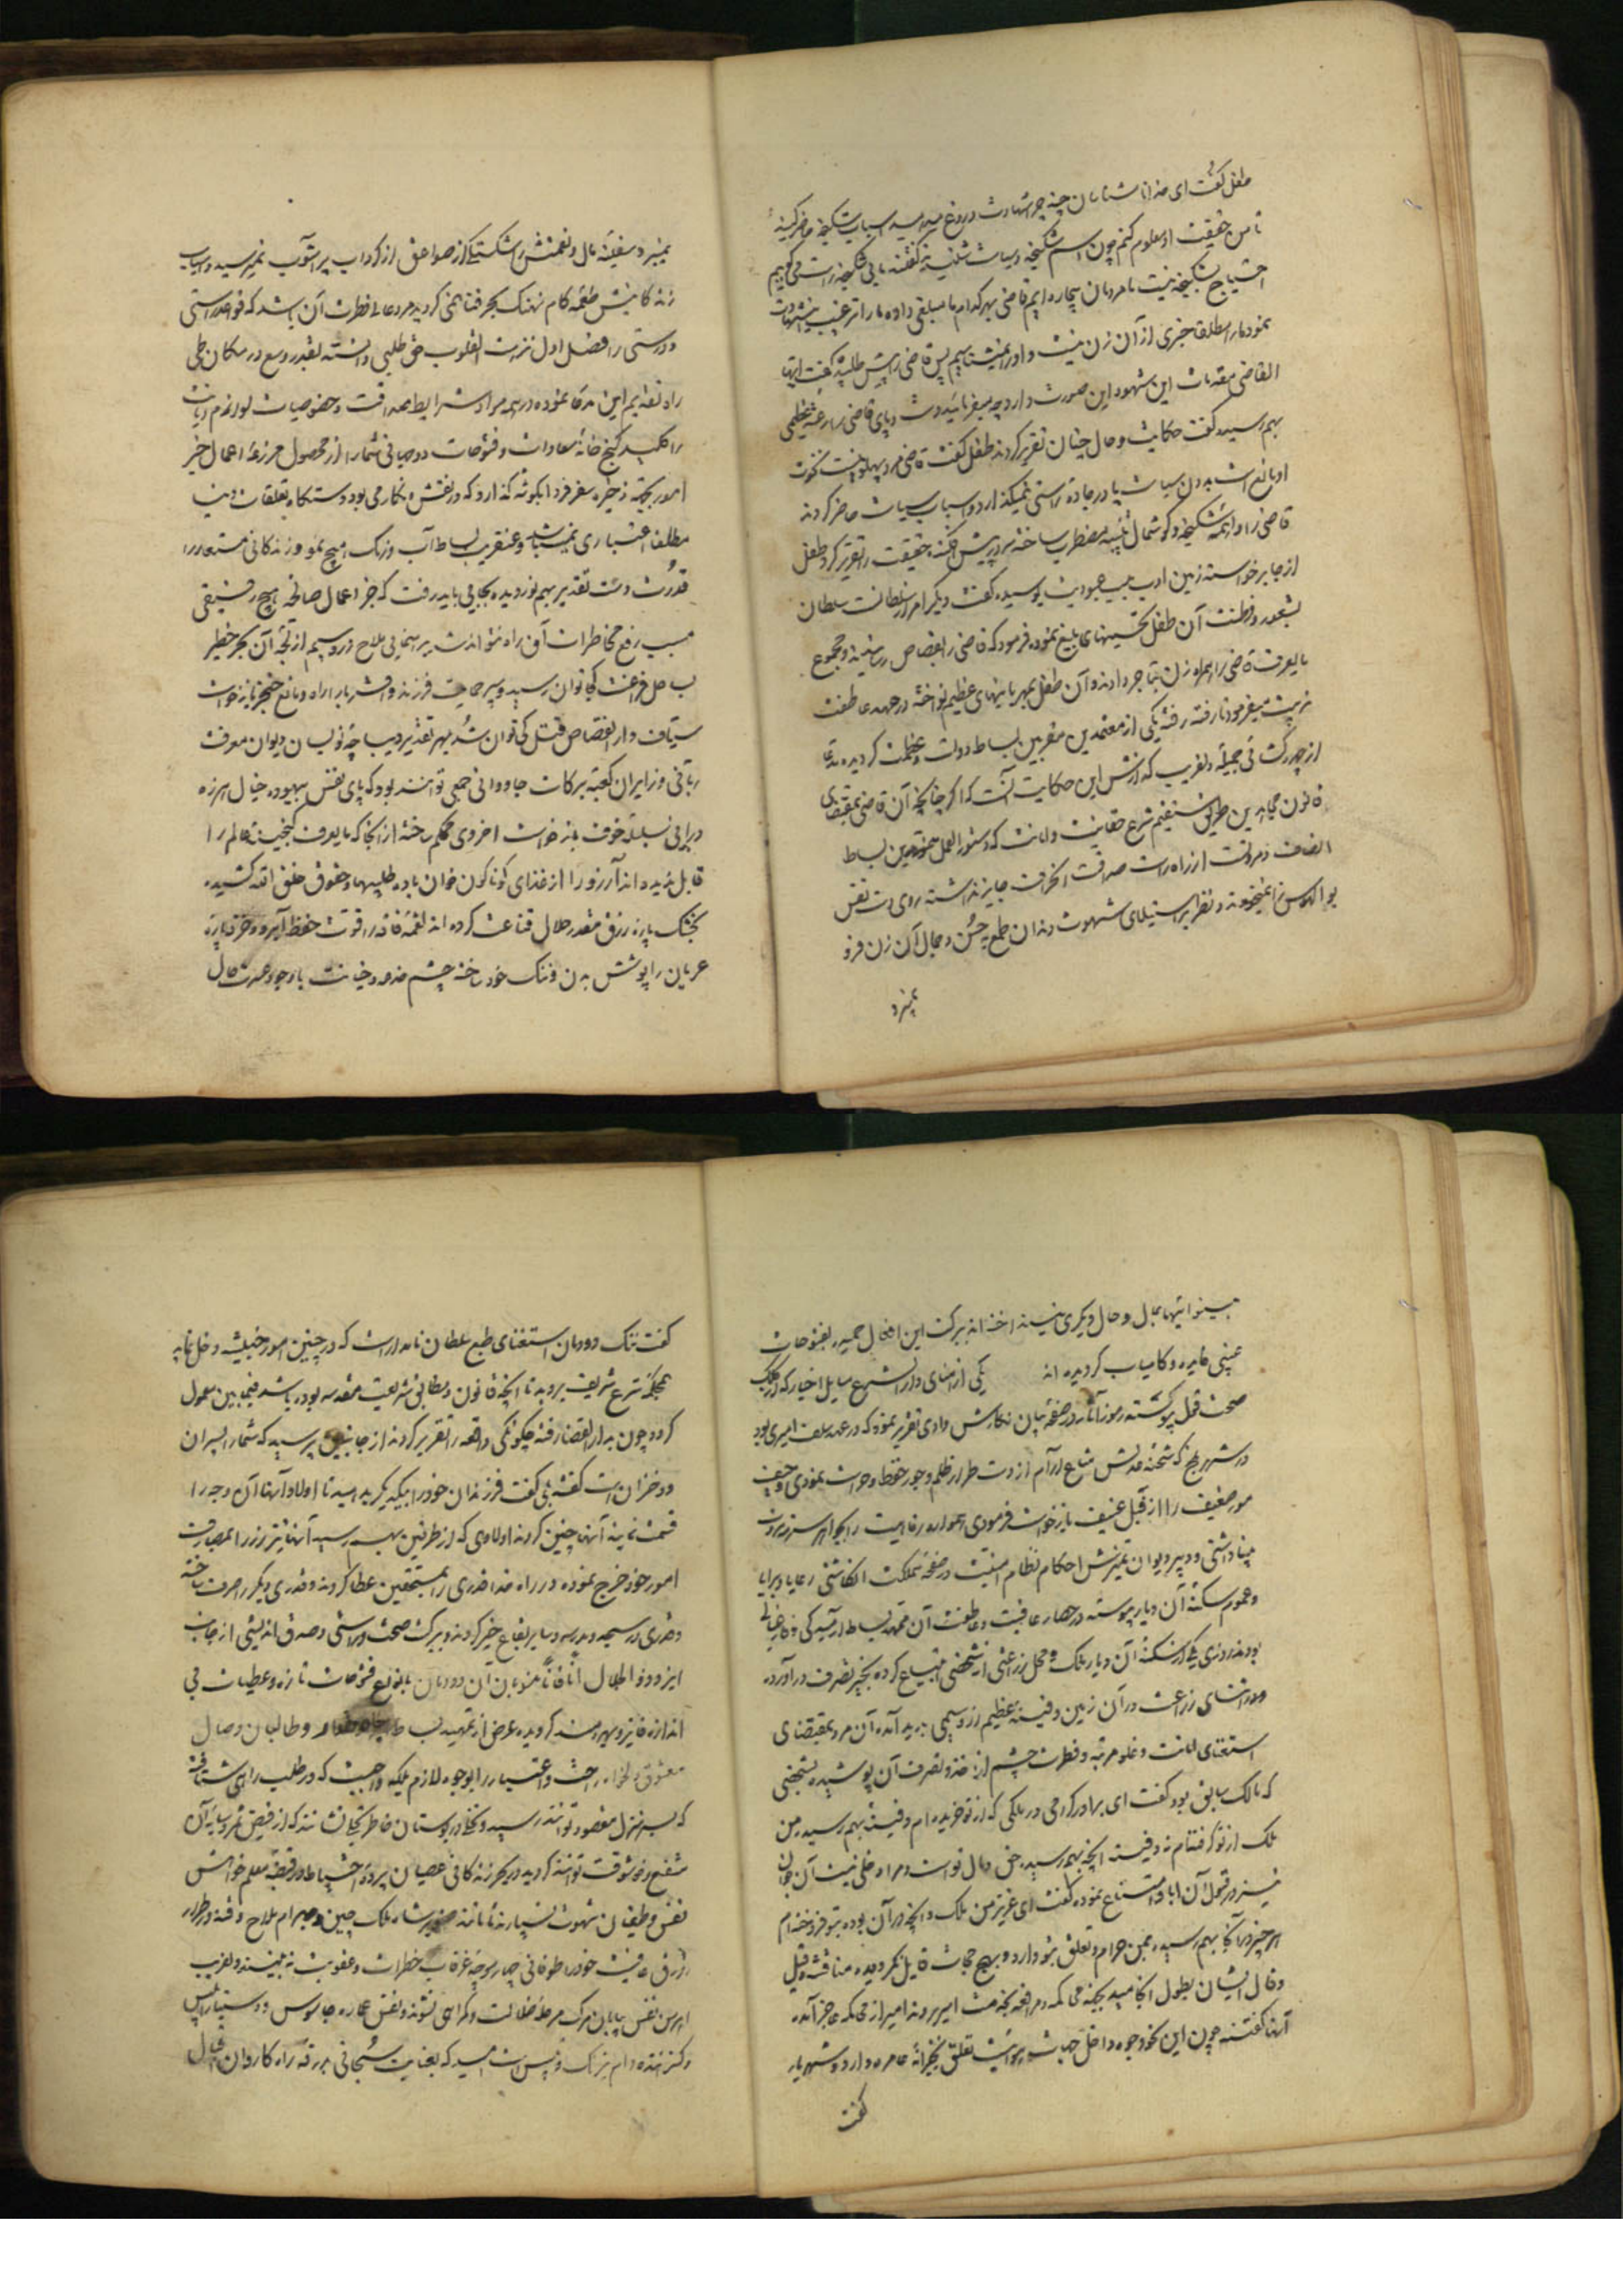 طفل گفت ای خدا ناشناسان چه جر شهادت دروغ میدهید اسباب شکنجه حاضر کنید
تا من حقیقت او معلوم کنم چون اسم شکنجه و سیاست شنیدند گفتند ما بی شکنجه راست می گوییم
احتیاج شکنجه نیست ما مردمان بیچاره ایم قاضی بهر کدام ما مبلغی داده ما را ترغیب شهادت
نمود ما را مطلقا خبری از آن زن نیست و او را نمیشناسیم پس قاضی را پیش طلبیده گفت ایها
القاضی مقدمات این شهود این صورت دارد چه میفرمائید دست و پای قاضی را رعشه عظیمی
بهم رسید گفت حکایت و حال چنان تقریر کردند طفل گفت قاضی مرد پهلو نخوت
او مانع است بدون سیاست پا در جاده راستی نمیگذارد و اسباب سیاست حاضر کردند
قاضی را واهمه شکنجه و گوشمال تنبیه مضطرب ساخته سر در پیش افکنده حقیقت را تقریر کرد طفل
از جا برخواسته زمین ادب بلب عبودیت بوسیده گفت دیگر امر از سلطانست سلطان
بشعور و فطنت آن طفل تحسینهای بلیغ نموده فرمود که قاضی را بقصاص رسانیدند و مجموع
مایعرف قاضی را بهمراه زن بتاجر دادند و آن طفل بمهربانیهای عظیم نواخته در مهد عاطفت
تربیت میفرمود تا رفته رفته یکی از معتمدین مقربین بساط دولت و عظمت گردید مدعا
از چهره گشائی جمیله دلفریب که ارزش این حکایت آنست که اگر چنانچه آن قاضی بمقتضای
قانون مجاهدین طریق مستقیم شرع حقانیت و امانت که دستور العمل متقدمین بساط
انصاف و مروتست از راه راست صداقت انحراف جایز نداشته روی دست نفس
بوالهوس را نمیخورد و نظر بر استیلای شهوت دندان طمع به حسن و جمال آن زن فرو
نمیبرد
نمیبرد سفینه مال و نعمتش را شکستگی از صواعق از گرداب پر آشوب نمیرسید و اسباب
زندگانیش طعمه کام نهنگ بحر فنا نمی گردید مرد عالی فطرت آن باشد که قواعد راستی
و درستی را فصل اول نزهت القلوب حق طلبی دانسته بقدر وسع در مکان طی
راه تقدیم این مدعا نموده در همه مواد شرایط صداقت و خصوصیات لوازم دیانت
را کلید گنج خانه سعادات و فتوحات دو جهانی شمارد از محصول مزرعه اعمال خیر
امور بجهته ذخیره سفر فردا بگوشه گذارد که در نقش نگار می بود و دستگاه تعلقات دنیا
مطلقا اعتباری نمیباشد و عنقریب بساط آب و رنگ امیج نمو و زندگانی مستعار را
قدرت دست تقدیر بهم نوردیده بجایی باید رفت که جز اعمال صالحه هیچ رفیقی
سبب رفع مخاطرات آن راه نتواند شد برهنمایی ملاح زر و سیم از لجه آن بحر خطیر
بساحل فراغت کجا توان رسید و سپر حمایت فرزند و اقربا را راه و مانع خنجر بازخواست
سیاف دار القصاص قتل کی توان شد بهر تقدیر دیباچه نویسان دیوان معرفت
ربانی و زایران کعبه برکات جاودانی جمعی توانند بود که پای نفس بیهوده خیال هرزه
درایی بسلسله خوف بازخواست اخروی محکم ساخته از آنجا که مایعرف گنجینه عالم را
قابل ندیده اند آرزو را از غذای گوناگون خوان باده طلبیها و حقوق خلق الله کشیده
بخشک پاره رزق مقدر حلال قناعت کرده اند لقمه فاقه را قوت حفظ آبرو و خرقه پاره
عریان را پوشش بدن و ننگ خود ساخته چشم خدعه و خیانت باوجود عسرت حال
بینوائیها بمال و حال دیگری نینداخته اند ببرکت این افعال حمیده بفتوحات
غیبی فایده و کامیاب گردیده اند یکی از امنای دار الشرع مسایل اخبار که از کلک
صحت قول پیوسته رموز آثار در صفحه بیان نگارش دادی تقریر نمود که در عهد سلف امیری بود
در شهر بلخ که شحنه عدلش متاع آرام از دست طرار ظلم و جور حفظ و حراست نمودی و حیف
مور ضعیف را از قبل عنیف بازخواست فرمودی همواره رفاهیت را بجواهر سرور
مینا داشتی و دبیر دیوان تمیزش احکام نظام امنیت در صفحه مملکت انگاشتی رعایا و برایا
و عموم سکنه آن دیار پیوسته در حصار عافیت و عاطفت آن ممهد بساط آسودگی و فارغبالی
بودند روزی یکی از سکنه آن دیار ملک و محل زرعتی از شخصی ابتیاع کرده بخیر تصرف در آورده
در اثنای زراعت در آن زمین دفینه عظیم از زر و سیمی پدید آمد آن مرد بمقتضای
استغنای امانت و علو مرتبه و فطرت چشم از اخذ و تصرف آن پوشیده بشخصی
که مالک سابق بود گفت ای برادر گرامی در ملکی که از تو خریده ام دفینه بهم رسیده من
ملک از تو گرفته ام نه دفینه آنچه بهم رسیده حق و مال تو است و مرا دخلی نیست آن جوان
نیز در قبول آن ابا و امتناع نموده گفت ای عزیز من ملک و آنچه در آن بوده بتو فروخته ام
هر چیز در آنجا بهم رسیده بمن حرام و تعلق بتو دارد و بهیچ جهات قایل نگردیده مناقشه و قیل
و قال ایشان بطول انجامید بجهته محاکمه و مرافعه بخدمت امیر بردند امیر از محاکمه عاجز آمده
آنها گفتند چون این نحو وجوه داخل جهات میراثست تعلق بخزانه عامره دارد و شهریار
گفت
گفت ننگ دودمان استغنای طبع سلطان نامدارست که در چنین امور خبیثه دخل نماید
بمحکمه شرع شریف بروید تا آنچه قانون و مطابق شریعت مقدسه بوده باشد فیمابین معمول
گردد چون بدار القضا رفته چگونگی واقعه را تقریر کردند از جانبین پرسید که شما را پسران
و دختران است گفتند بلی گفت فرزندان خود را بیکدیگر بدهید تا اولاد آنها آن وجه را
قسمت نمایند آنها چنین کردند اولادی که از طرفین بهم رسید آنها نیز زر را بمصارف
امور خود خرج نموده در راه خدا قدری را بمستحقین عطا کردند و قدری دیگر را صرف ساخته
و قدری در مسجد و مدرسه و سایر بقاع خیر کردند و ببرکت صحت و راستی و صدق اندیشی از جانب
ایزد ذو الجلال آنا فآنا منسوبان آن دودمان بانواع فتوحات تازه و عطیات بی
اندازه فایز و بهره مند گردیده غرض از تمهید بساط و طالبان وصال
معشوق دلخواه راحت و اعتبار را بوجوه لازم بلکه واجبست که در طلب راهی شتافته
که بسر منزل مقصود توانند رسید و نخلی در بوستان خاطر نشانند که از فیض ثمر و سایه آن
منتفع و خوشوقت توانند گردید در بحر زندگانی عصیان پرده احتیاط در قبضه معلم خواهش
نفس و طغیان شهوت نسپارند تا مانند پسر شاه ملک چین و بهرام ملاح و فتنه طرار
زورق عافیت خود را طوفانی چهار موجه غرقاب خطرات و عقوبت نه بینند و لغریب
اهرمن نفس بیابان مرگ مرحله ضلالت و گمراهی نشوند و نفس جاسوس و دستیار ابلیس
و گزانده دام نیرنگ و پس است امید که بعنایت سبحانی بدرقه راه کاروان اقبال